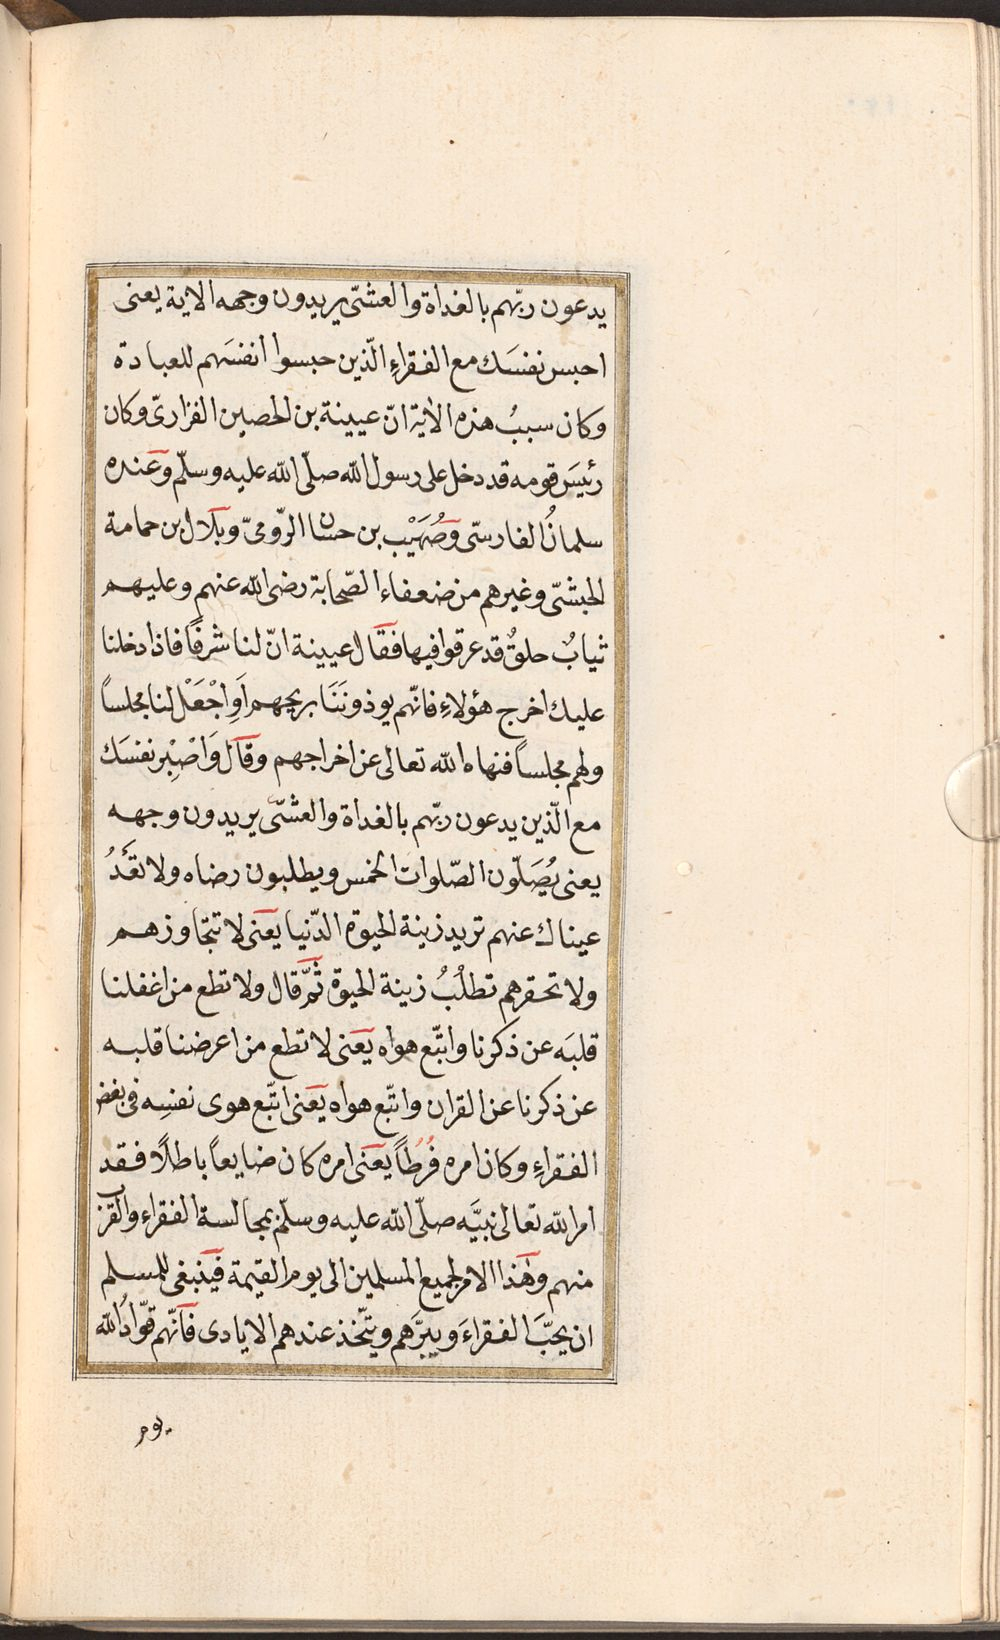 يدعون ربّهم بالغداة والعشىّ يريدون وجهه الاية يعنى
احبس نفسَك مع الفقراءِ الّذين حبسوا انفسَهم للعبادة
وكان سببُ هذه الاٰية انّ عيينة بن الحصين الفزارىّ وكان
رئيسَ قومه قد دخل على رسول الله صلّى الله عليه وسلّم وعنده
سلمانُ الفارسىّ وصُهَيْب بن حسان الرّومىّ وبلال بن حمامة
الحبشىّ وغيرهم من ضعفاء الصّحابة رضى الله عنهم وعليهم
ثيابٌ حلقٌ قد عرقوا فيها فقال عيينة انّ لنا شرفًا فاذا دخلنا
عليك اخرج هؤلاءِ فانّهم يوذونَنَا بريحهم اَوِاجْعَلْ لنا مجلساً
ولهم مجلساً فنهاه الله تعالى عن اخراجهم وقال وَاصْبِر نفسَك
مع الّذين يدعون ربّهم بالغداة والعشىّ يريدون وجهه
يعنى يُصَلّون الصّلوات الخمس ويطلبون رضاه ولا تَعْدُ
عيناك عنهم تريد زينة الحيوة الدّنيا يعنى لا تتجاوزهم
ولا تحقرهم تطلُبُ زينة الحيوة ثمّ قال ولا تطع من اغفلنا
قلبَه عن ذكرنا واتّبع هواه يعنى لا تطع من اعرضنا قلبه
عن ذكرنا عن القران واتّبع هواه يعنى اتّبع هوى نفسِه فى بغض
الفقراءِ وكان امره فُرُطاً يعنى امره كان ضايعاً باطلاً فقد
امر الله تعالى نبيَّه صلّى الله عليه وسلّم بمجالسة الفقراء والقرب
منهم وهٰذا الامر لجميع المسلمين الى يوم القيمة فينبغى للمسلم
ان يحبَّ الفقراءَ ويبرَّهم ويتّخذ عندهم الايادى فانّهم قوّادُ الله
يوم